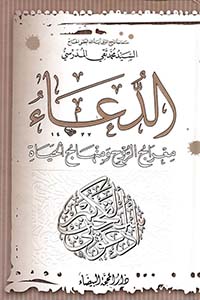 السيد محمد تقي المدرسي
الدعاء
معراج الروح ومنهاج الحياة
دار المحجة البيضاء